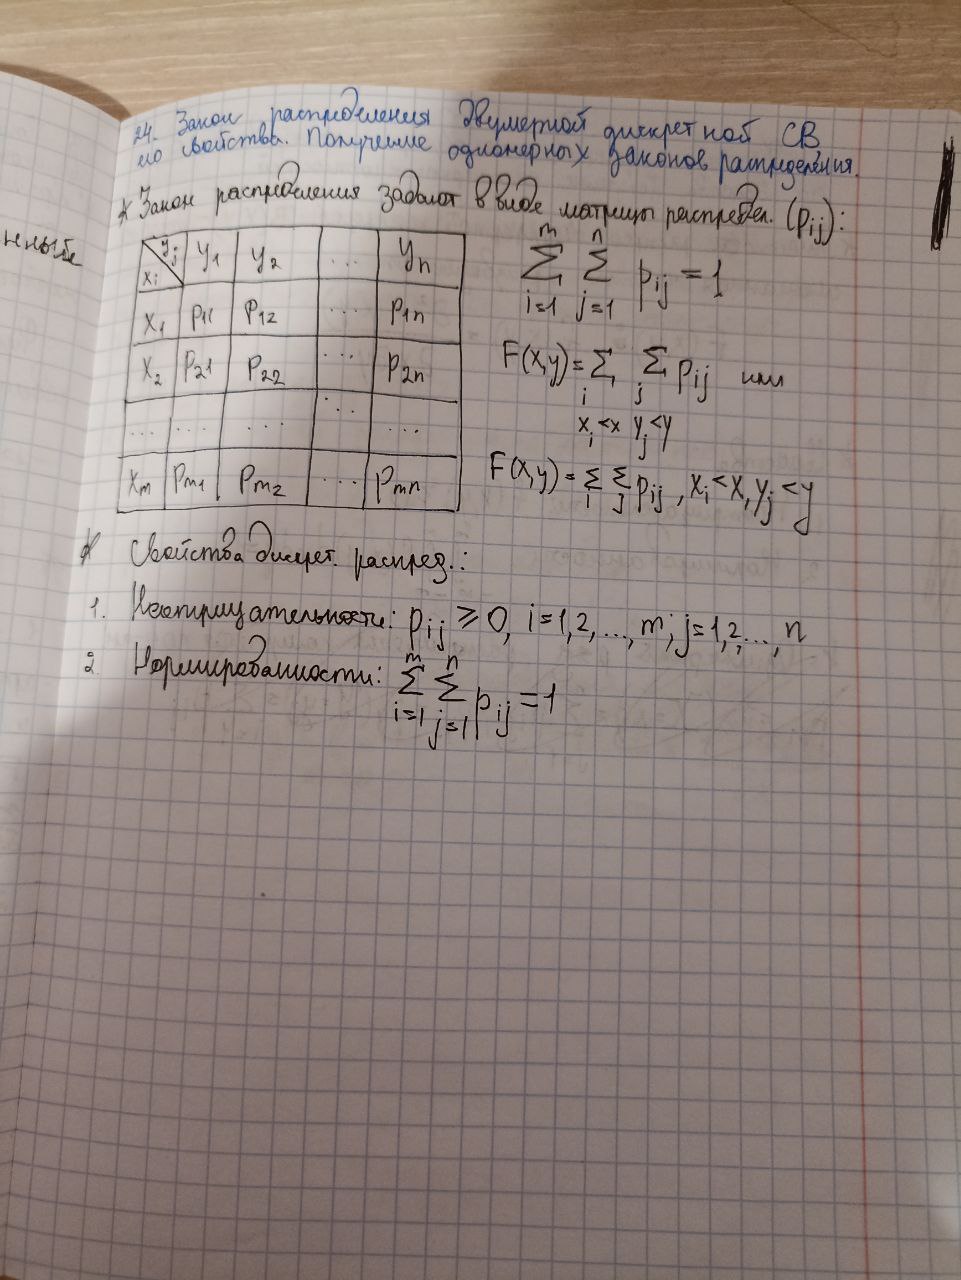 24. Закон распределения двумерной дискретной СВ
его свойства. Получение одномерных законов распределения.
* Закон распределения задают в виде матрицы распредел. (pij):
нные
yj xi y1 y2 ... yn
x1 p11 p12 ... p1n
x2 p21 p22 ... p2n
... ... ... ... ...
xm pm1 pm2 ... pmn
m n
∑ ∑ pij = 1
i=1 j=1
F(x,y)= ∑ ∑ pij или
i j
xi<x yj<y
F(x,y)= ∑ ∑ pij , xi<x, yj<y
i j
* Свойства дискрет. распред.:
1. Неотрицательности: pij ≥ 0, i=1,2,...,m; j=1,2,...,n
2. Нормированности: m n
∑ ∑ pij = 1
i=1 j=1